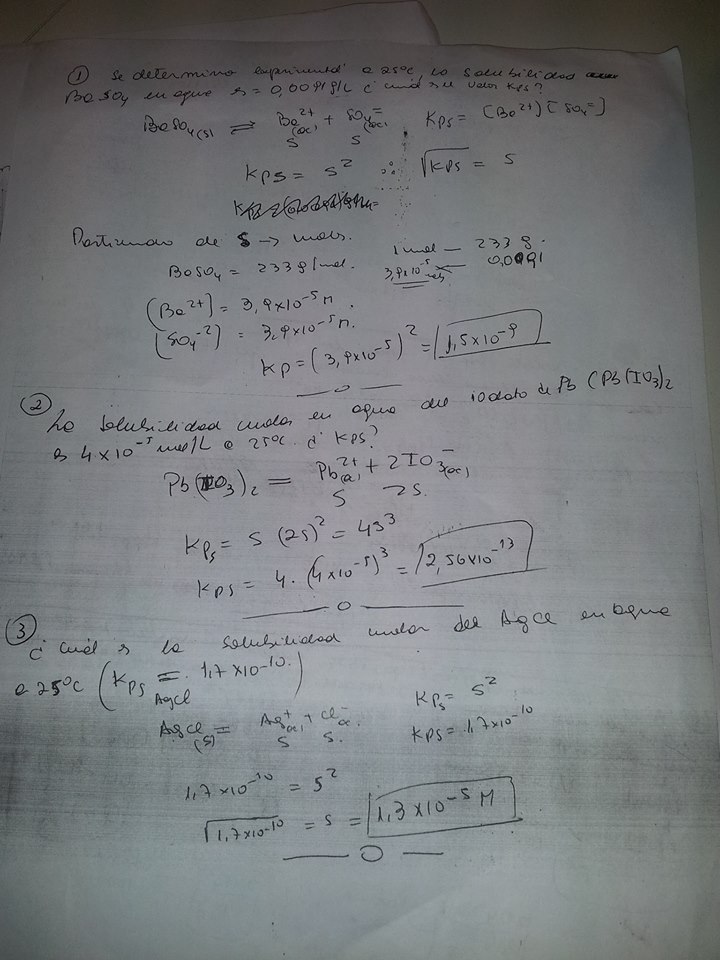 ① Se determino experimental a 25°C, la solubilidad
BaSO4 en agua es = 0,0091 g/L ¿ cual su valor Kps?
BaSO4 (s) ⇌ Ba2+ (ac) + SO4= (ac) Kps = [Ba2+] [SO4=]
S S
Kps = S2 ∴ √Kps = S
Partiendo de S → mols. 1 mol — 233 g.
BaSO4 = 233 g/mol. 3,9x10-5 mols — 0,0091
[Ba2+] = 3,9x10-5 M.
[SO4-2] = 3,9x10-5 M.
Kp = (3,9x10-5)2 = 1,5x10-9
② La solubilidad molar en agua del iodato de Pb (Pb(IO3)2
es 4x10-5 mol/L a 25°C. ¿ Kps?
Pb(IO3)2 = Pb2+ (ac) + 2IO3- (ac)
S 2S.
Kps = S (2S)2 = 4S3
Kps = 4. (4x10-5)3 = 2,56x10-13
③ ¿ Cuál es la solubilidad molar del AgCl en agua
a 25°C (Kps AgCl = 1,7x10-10.)
AgCl (s) = Ag+ (ac) + Cl- ac. Kps = S2
S S. Kps = 1,7x10-10
1,7x10-10 = S2
√1,7x10-10 = S = 1,3x10-5 M